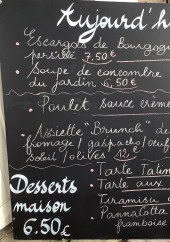 Aujourd'h
• Escargots de Bourgogne
persillé 7.50€
• Soupe de concombre
du jardin 6,50€
• Poulet sauce crème
• Assiette "Brunch" de
fromage / gaspacho / oeuf
soleil / olives 12€
Desserts
maison
6.50€
• Tarte Tatin
• Tarte aux
• Tiramisu
• Pannacotta
framboise